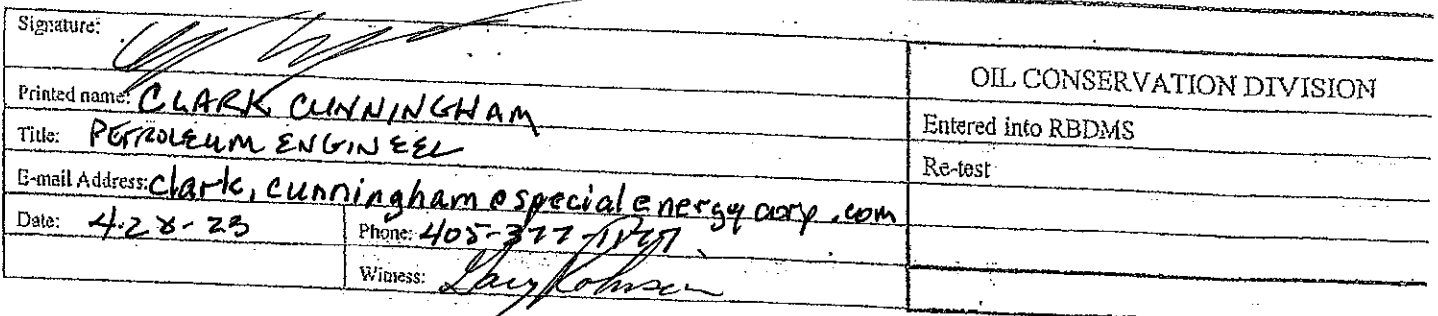 Signature:
Printed name: CLARK CUNNINGHAM
Title: PETROLEUM ENGINEER
E-mail Address: clark.cunningham@specialenergycorp.com
Date: 4-28-23
Phone: 405-377-
Witness: Gary Robinson
OIL CONSERVATION DIVISION
Entered into RBDMS
Re-test